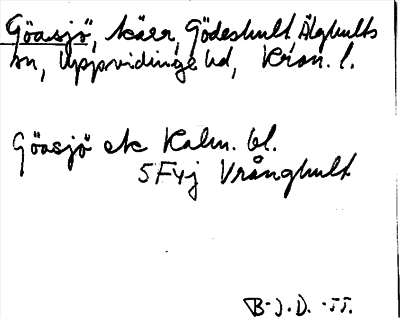 Göasjö, kärr, Gödeshult Älghults
sn, Uppvidinge hd, Kron. l.
Göasjö ek Kalm. bl.
5F4j Vrånghult
B-J.D. -55.